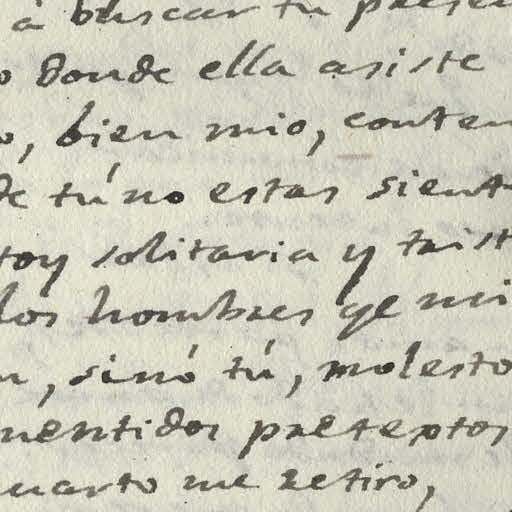 á buscar tu presen
o donde ella asiste
o, bien mio, conten
de tú no estas sient
toy solitaria y trist
los hombres qe mi
n, sinó tú, molesto
mentidos pretextos
cuarto me retiro,